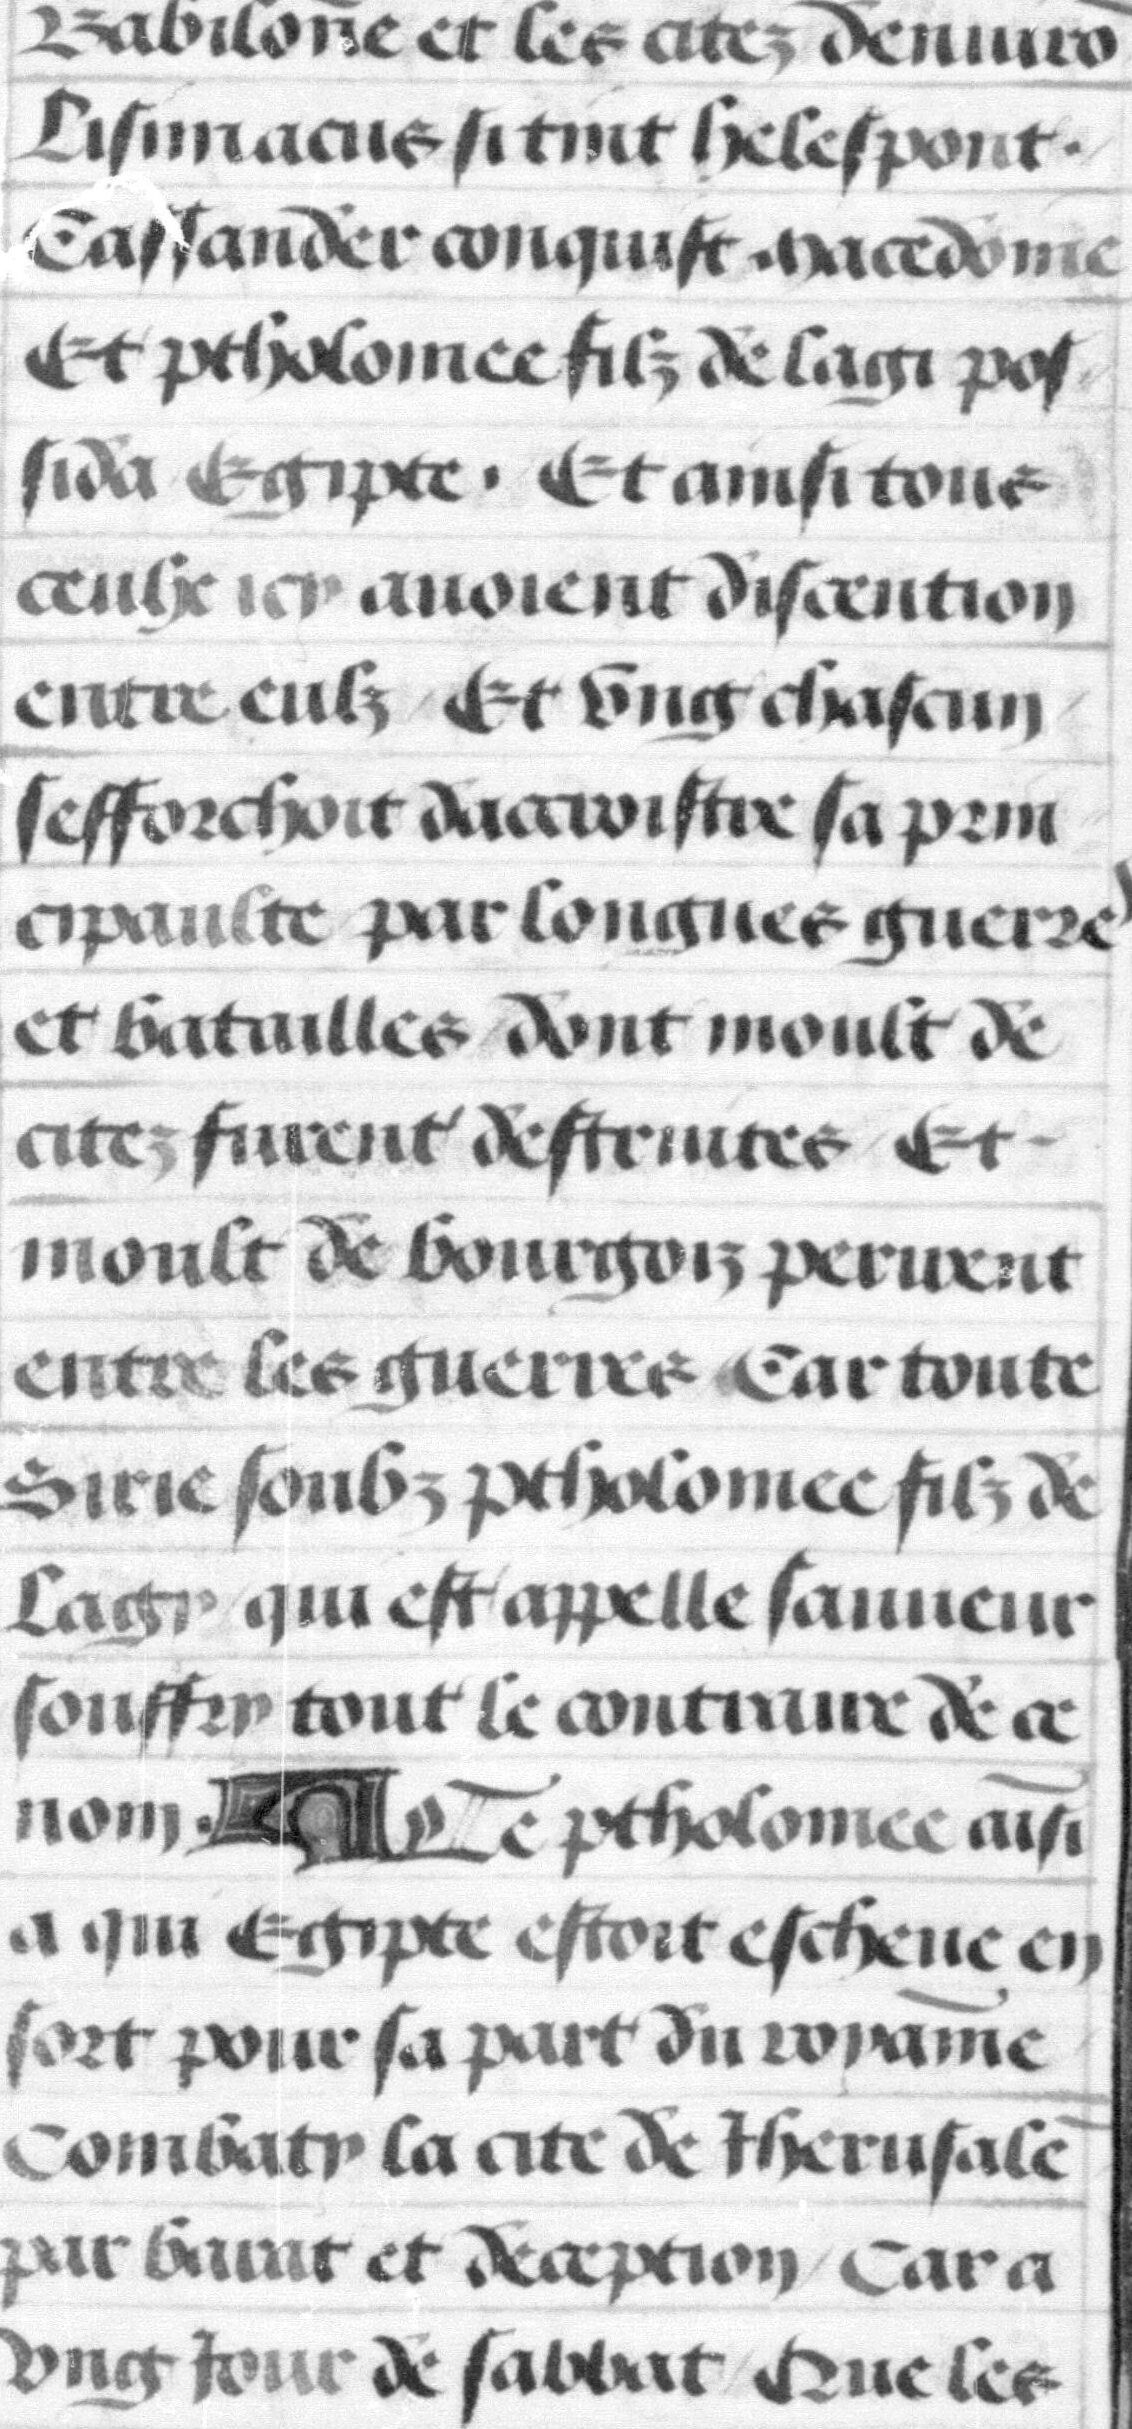 Babilonne et les citez denuirō
Lisimacus si tint helespont.
Cassander conquist macedonie
Et ptholomee filz de lagi pos
sida Egipte. Et ainsi tous
ceulx icy auoient discention
entre eulz / Et vng chascun /
sefforchoit daccroistre sa prin
cipaulte / par longues guerres
et batailles / dont moult de
citez furent destruites / Et -
moult de bourgoiz perirent
entre les guerres / Car toute
Sirie soubz ptholomee filz de
Lagy / qui est appelle sauueur
souffry tout le contraire de ce
nom. Ce ptholomee aīsi
a qui Egipte estoit escheue en
sort pour sa part du royāme
Combaty la cite de Iherusalē
par barat et deception / Car a
vng Jour de sabbat / Que les